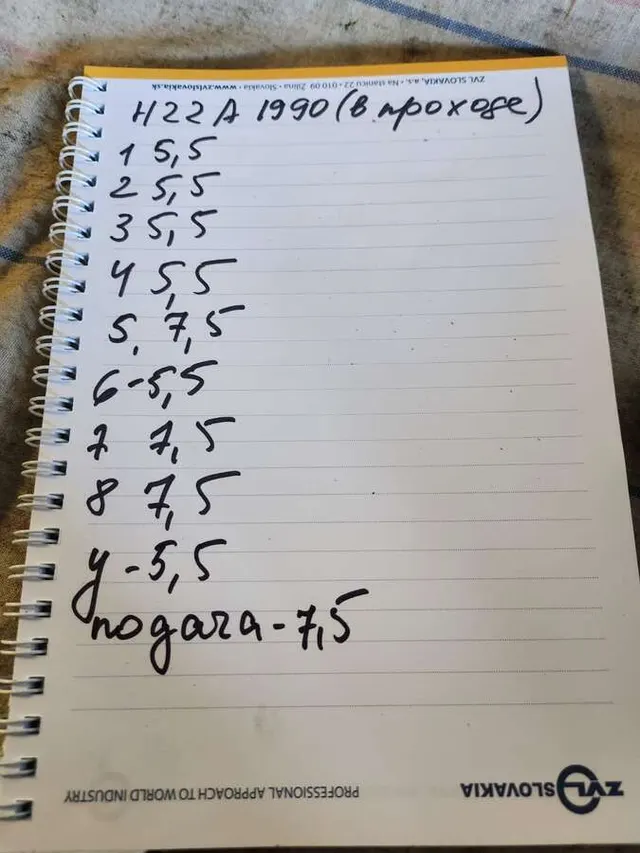 ZVL SLOVAKIA, a.s. • Na stanicu 22 • 010 09 Žilina • Slovakia • www.zvlslovakia.sk
Н22А 1990 (в проходе)
1 5,5
2 5,5
3 5,5
4 5,5
5, 7,5
6-5,5
7 7,5
8 7,5
у-5,5
подача-7,5
ZVL SLOVAKIA
PROFESSIONAL APPROACH TO WORLD INDUSTRY